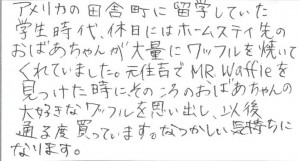 アメリカの田舎町に留学していた
学生時代、休日にはホームステイ先の
おばあちゃんが大量にワッフルを焼いて
くれていました。元住吉でMR.Waffleを
見つけた時にそのころのおばあちゃんの
大好きなワッフルを思い出し、以後
通る度買っています。なつかしい気持ちに
なります。